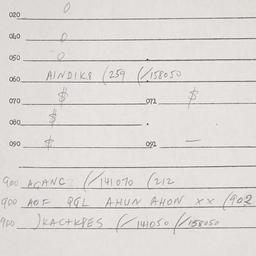 020 0
040 0
050 0
060 AINDIK8 (259 (/158050
070 $ 071 $
080 $
090 $ 091 —
900 AGANC (/141070 (212
900 AOF QGL AHUN AHON xx (902
900 )KACTKPES (/141050 /158050